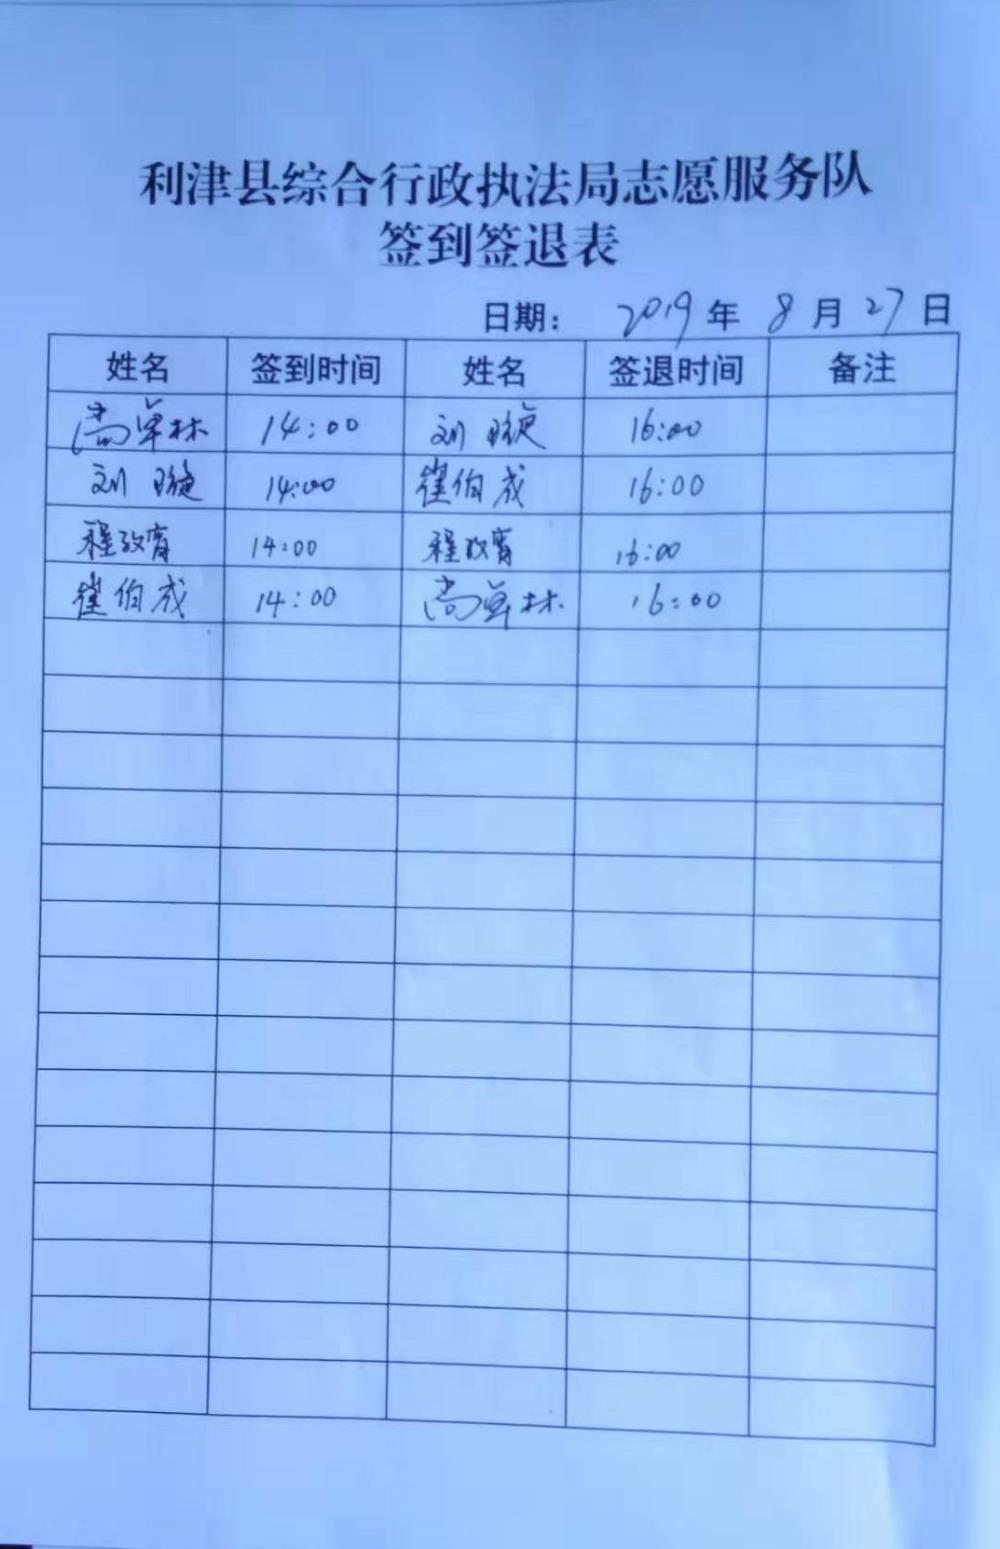 利津县综合行政执法局志愿服务队
签到签退表
日期： 2019 年 8 月 27 日
姓名 签到时间 姓名 签退时间 备注
尚单林 14:00 刘璇 16:00
刘璇 14:00 崔伯成 16:00
程政育 14:00 程政育 16:00
崔伯成 14:00 尚单林 16:00